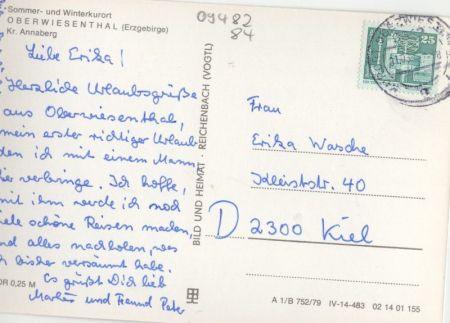 09482
84
Sommer- und Winterkurort
OBERWIESENTHAL (Erzgebirge)
Kr. Annaberg
25
Liebe Erika!
Herzliche Urlaubsgrüße
aus Oberwiesenthal,
mein erster richtiger Urlaub
den ich mit einem Mann
verbringe. Ich hoffe,
mit ihm werde ich noch
viele schöne Reisen machen,
und alles nachholen, was
ich bisher versäumt habe.
Es grüßt Dich lieb
und Freund Peter
BILD UND HEIMAT · REICHENBACH (VOGTL)
Frau
Erika Wasche
Kleiststr. 40
D 2300 Kiel
0,25 M
A 1/B 752/79 IV-14-483 02 14 01 155